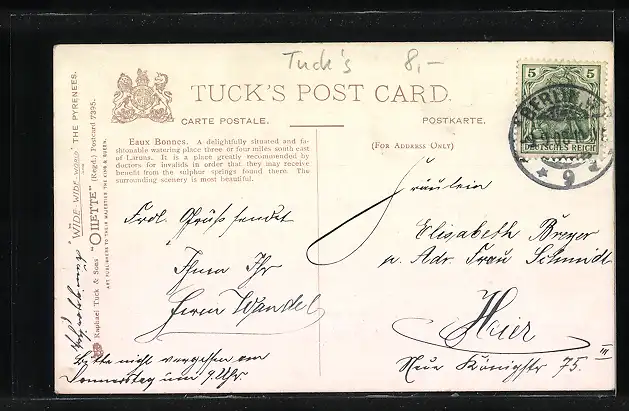 Tuck's 8,-
TUCK'S POST CARD.
CARTE POSTALE. POSTKARTE.
(FOR ADDRESS ONLY)
Eaux Bonnes. A delightfully situated and fa-
shionable watering place three or four miles south east
of Laruns. It is a place greatly recommended by
doctors for invalids in order that they may receive
benefit from the sulphur springs found there. The
surrounding scenery is most beautiful.
Frdl. Grüße sendet
Ihnen Ihr
Wandel
Bitte nicht vergessen am
Donnerstag um 9. Uhr.
Fräulein
Elisabeth Breyer
Adr. Frau Schmidt
Hier
Neue Königstr 75. III
"WIDE-WIDE-WORLD" THE PYRENEES.
Raphael Tuck & Sons' "OILETTE" (Regd.) Postcard 7395.
ART PUBLISHERS TO THEIR MAJESTIES THE KING & QUEEN.
5 5
DEUTSCHES REICH
BERLIN
9